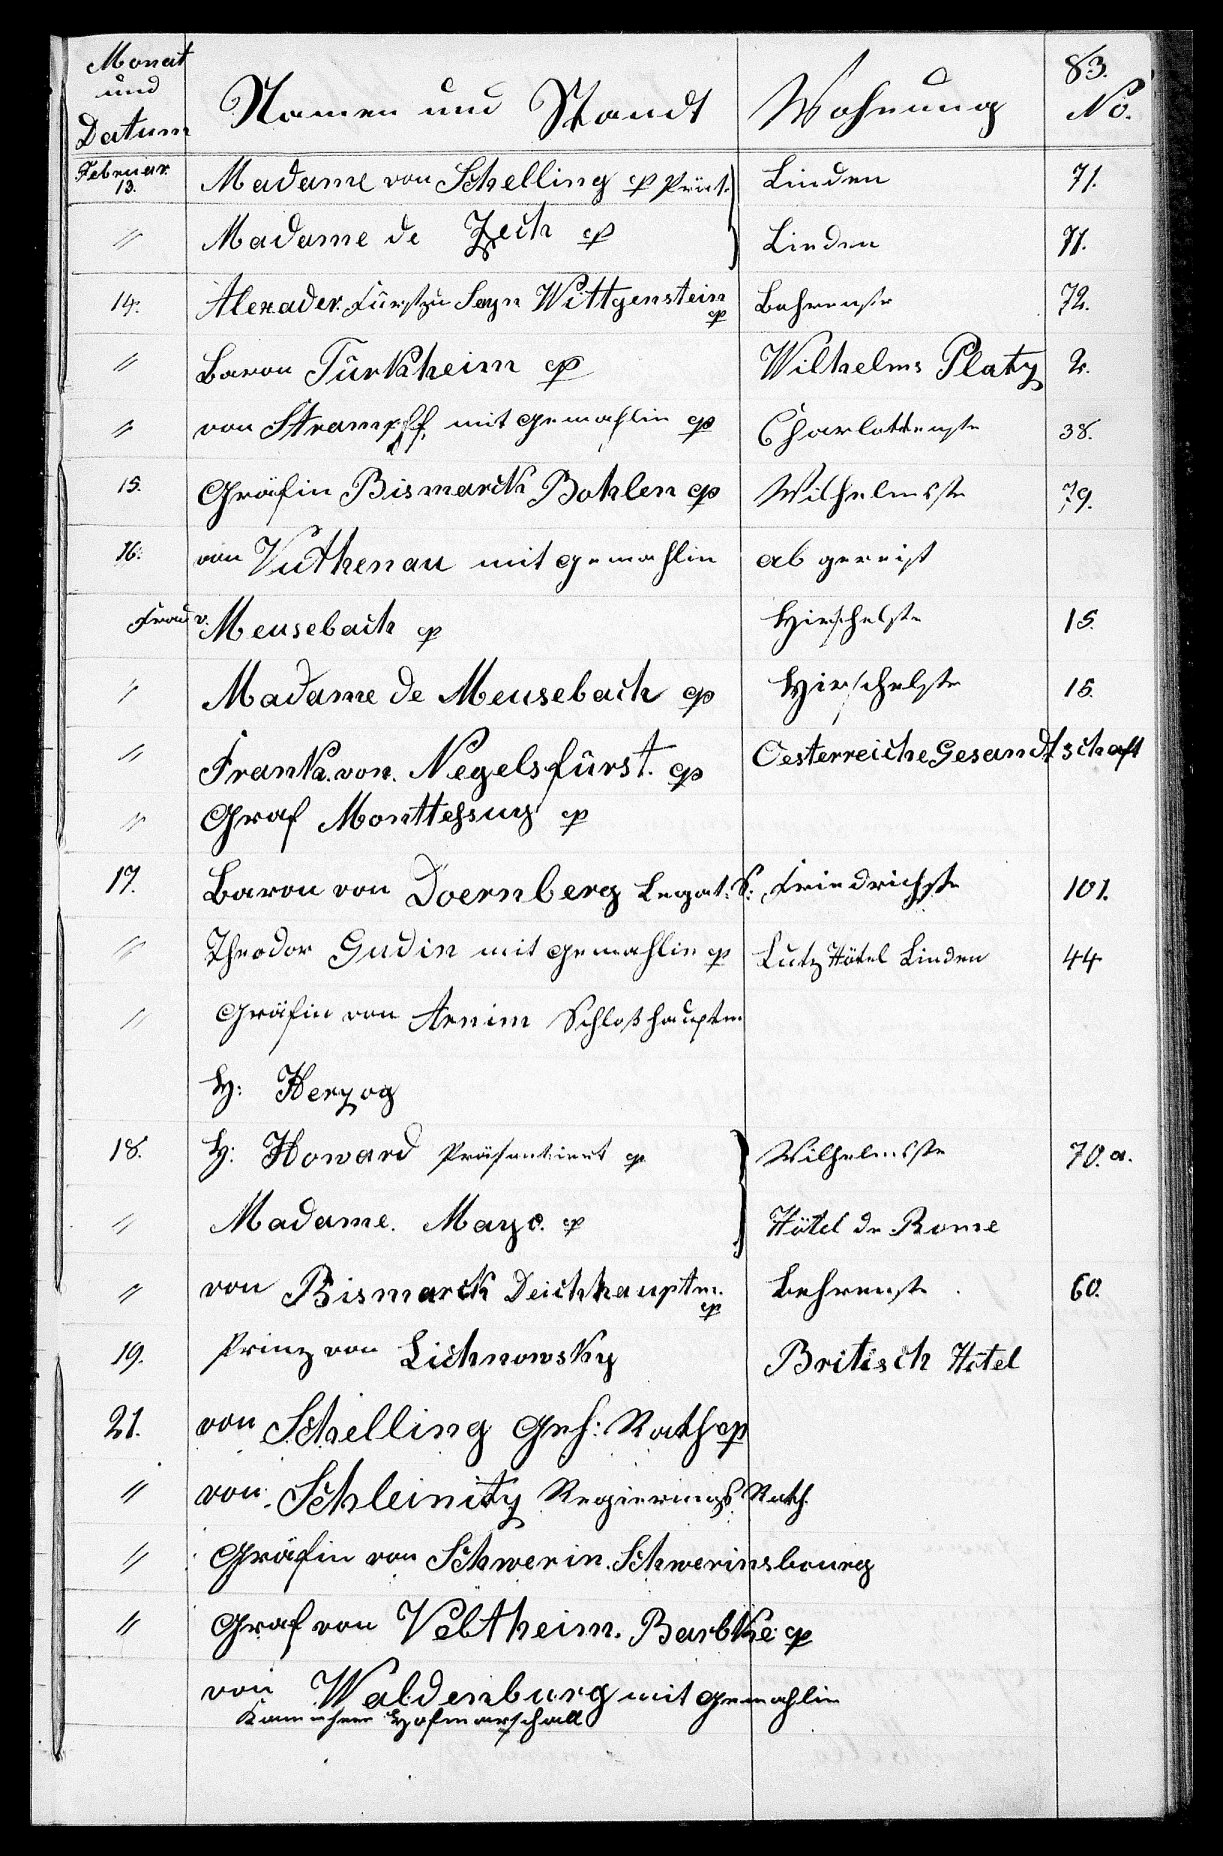 83.
Monat und Datum Namen und Standt Wohnung No.
Februar. 13. Madame von Schelling cp Präs. Linden 71.
" Madame de Zech cp Linden 71.
14. Alexader. Fürst zu Sayn Wittgenstein cp Behrenstr 72.
" Baron Türkheim cp Wilhelms Platz 2.
" von Strampff, mit Gemahlin cp Charlottenstr 38.
15. Gräfin Bismarck Bohlen cp Wilhelmsstr 79.
16. von Vuthenau mit Gemahlin ab gereist
Frau v. Meusebach cp Hirschelstr 15.
" Madame de Meusebach cp Hirschelstr 15.
" Frank. von. Negelsfürst. cp Oesterreiche Gesandtschaft
" Graf Monttessuy cp
17. Baron von Doernberg Legat. S: Friedrichstr 101.
" Theodor Gudin mit Gemahlin cp Lutz Hôtel Linden 44
" Gräfin von Arnim Schloßhauptm
H: Herzog
18. H: Howard Präsentiert cp Wilhelmsstr 70. a.
" Madame. Mayo. cp Hôtel de Rome
" von Bismarck Deichhauptm. cp Behrenstr. 60.
19. Prinz von Lichnowsky Britisch Hotel
21. von Schelling Geh: Rath cp
" von Schleinitz Regierungs Rath.
" Gräfin von Schwerin. Schwerinsbourg
" Graf von Veltheim. Barbke cp
von Waldenburg mit Gemahlin
Kammherr Hofmarschall